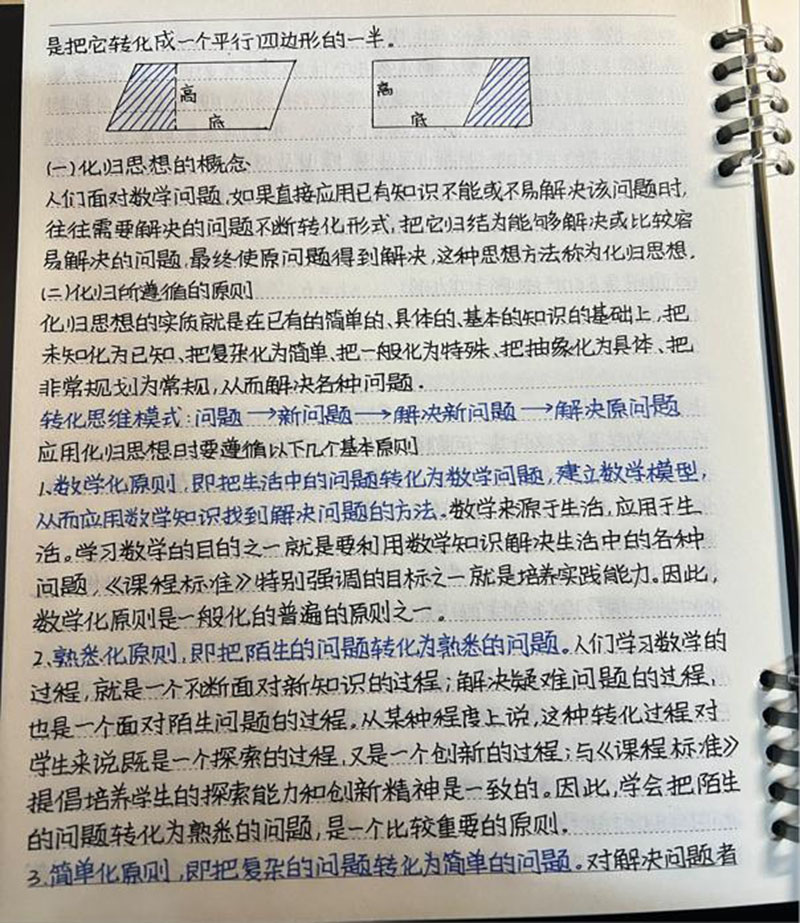 是把它转化成一个平行四边形的一半。
高
底
高
底
(一)化归思想的概念
人们面对数学问题,如果直接应用已有知识不能或不易解决该问题时,
往往需要解决的问题不断转化形式,把它归结为能够解决或比较容
易解决的问题,最终使原问题得到解决,这种思想方法称为化归思想.
(二)化归所遵循的原则
化归思想的实质就是在已有的简单的、具体的、基本的知识的基础上,把
未知化为已知、把复杂化为简单、把一般化为特殊、把抽象化为具体、把
非常规划为常规,从而解决各种问题.
转化思维模式:问题→新问题→解决新问题→解决原问题
应用化归思想时要遵循以下几个基本原则
1、数学化原则,即把生活中的问题转化为数学问题,建立数学模型,
从而应用数学知识找到解决问题的方法。数学来源于生活,应用于生
活。学习数学的目的之一就是要利用数学知识解决生活中的各种
问题,《课程标准》特别强调的目标之一就是培养实践能力。因此,
数学化原则是一般化的普遍的原则之一。
2、熟悉化原则,即把陌生的问题转化为熟悉的问题。人们学习数学的
过程,就是一个不断面对新知识的过程;解决疑难问题的过程,
也是一个面对陌生问题的过程。从某种程度上说,这种转化过程对
学生来说既是一个探索的过程,又是一个创新的过程;与《课程标准》
提倡培养学生的探索能力和创新精神是一致的。因此,学会把陌生
的问题转化为熟悉的问题,是一个比较重要的原则.
3、简单化原则,即把复杂的问题转化为简单的问题。对解决问题者